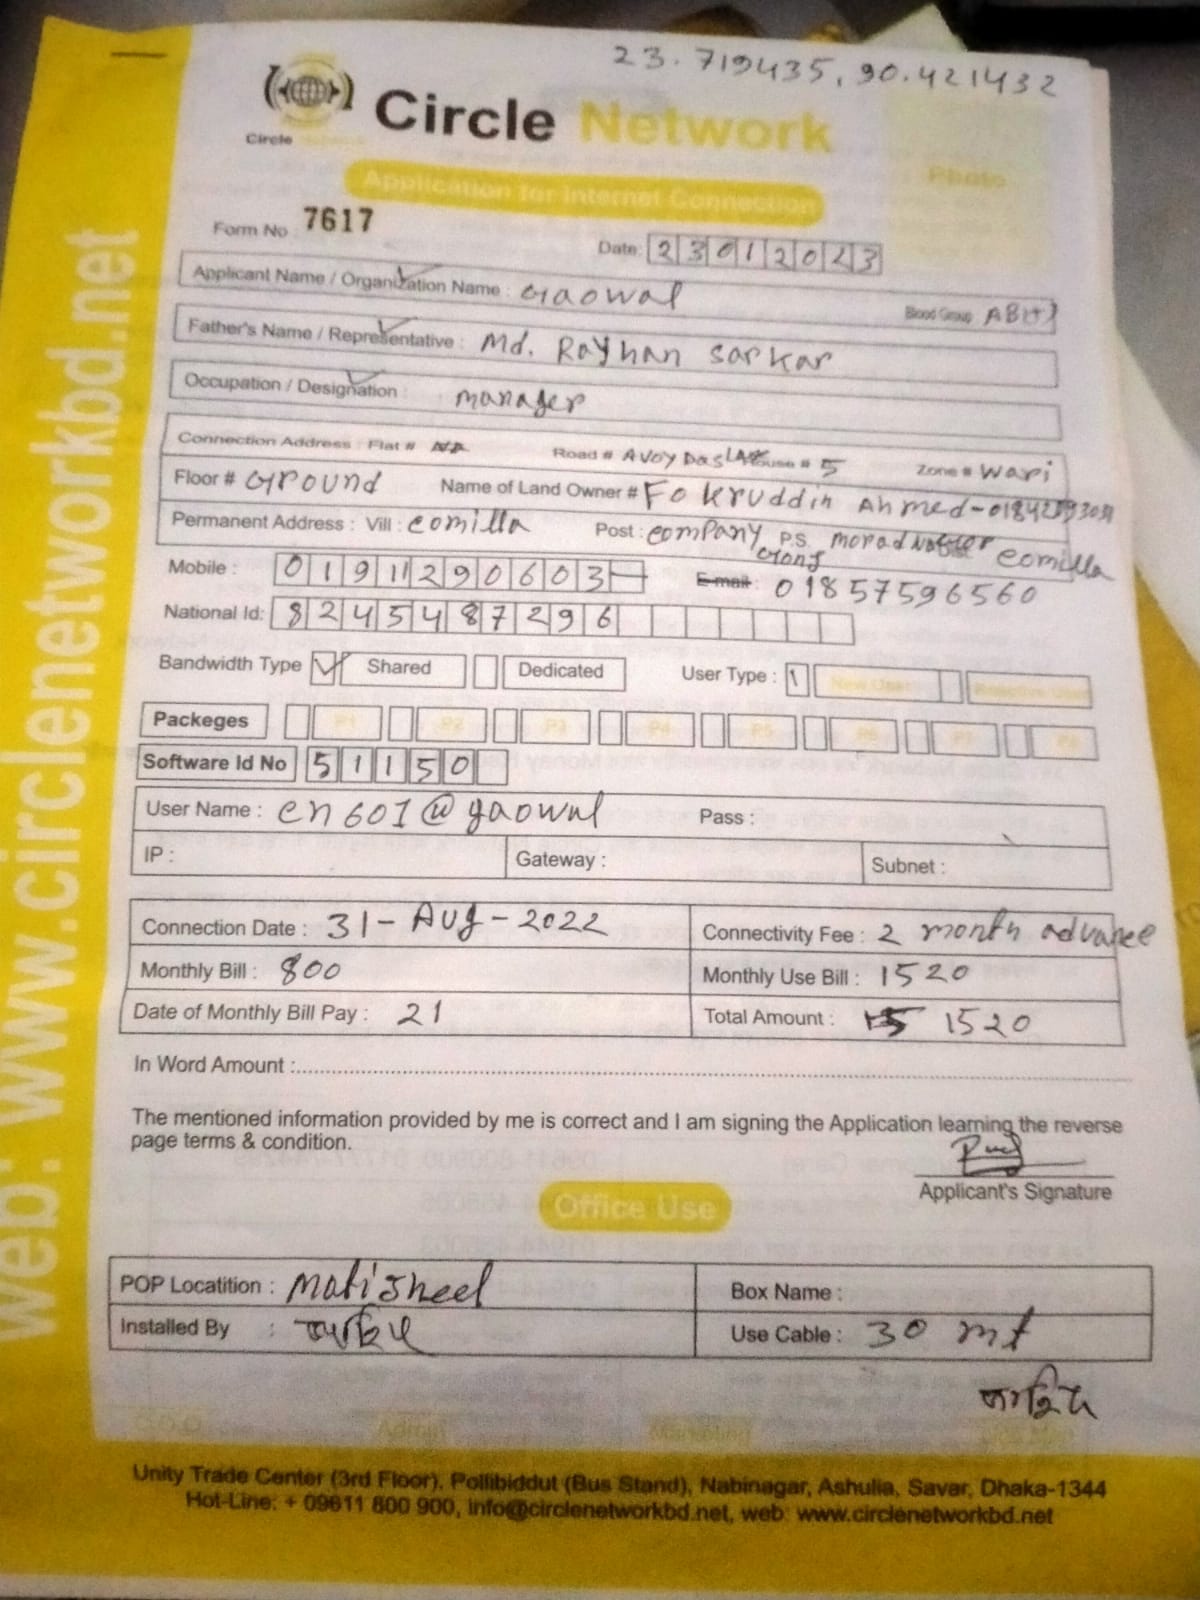 23.719435, 90.421432
Circle Network
Circle
Application for Internet Connection
Photo
Form No 7617
Date: 23012023
Applicant Name / Organization Name : Gaowal Blood Group AB(+)
Father's Name / Representative : Md. Rayhan Sarkar
Occupation / Designation : manager
Connection Address : Flat # NA Road # Avoy Das Lane House # 5 Zone # Wari
Floor # Ground Name of Land Owner # Fokruddin Ahmed-
Permanent Address : Vill : comilla Post : company gong P.S. moradnagor comilla
Mobile : 01911290603 E-mail : 01857596560
National Id: 8245487296
Bandwidth Type Shared Dedicated User Type : New User Reactive User
Packeges P1 P2 P3 P4 P5 P6 P7 P8
Software Id No 51150
User Name : en601@gaowal Pass :
IP : Gateway : Subnet :
Connection Date : 31-Aug-2022 Connectivity Fee : 2 month advance
Monthly Bill : 800 Monthly Use Bill : 1520
Date of Monthly Bill Pay : 21 Total Amount : 1520
In Word Amount :
The mentioned information provided by me is correct and I am signing the Application learning the reverse
page terms & condition.
Applicant's Signature
Office Use
POP Locatition : Matijheel Box Name :
Installed By : Use Cable : 30 mt
Admin Marketing
Unity Trade Center (3rd Floor), Pollibiddut (Bus Stand), Nabinagar, Ashulia, Savar, Dhaka-1344
Hot-Line: + 09611 800 900, info@circlenetworkbd.net, web: www.circlenetworkbd.net
web: www.circlenetworkbd.net